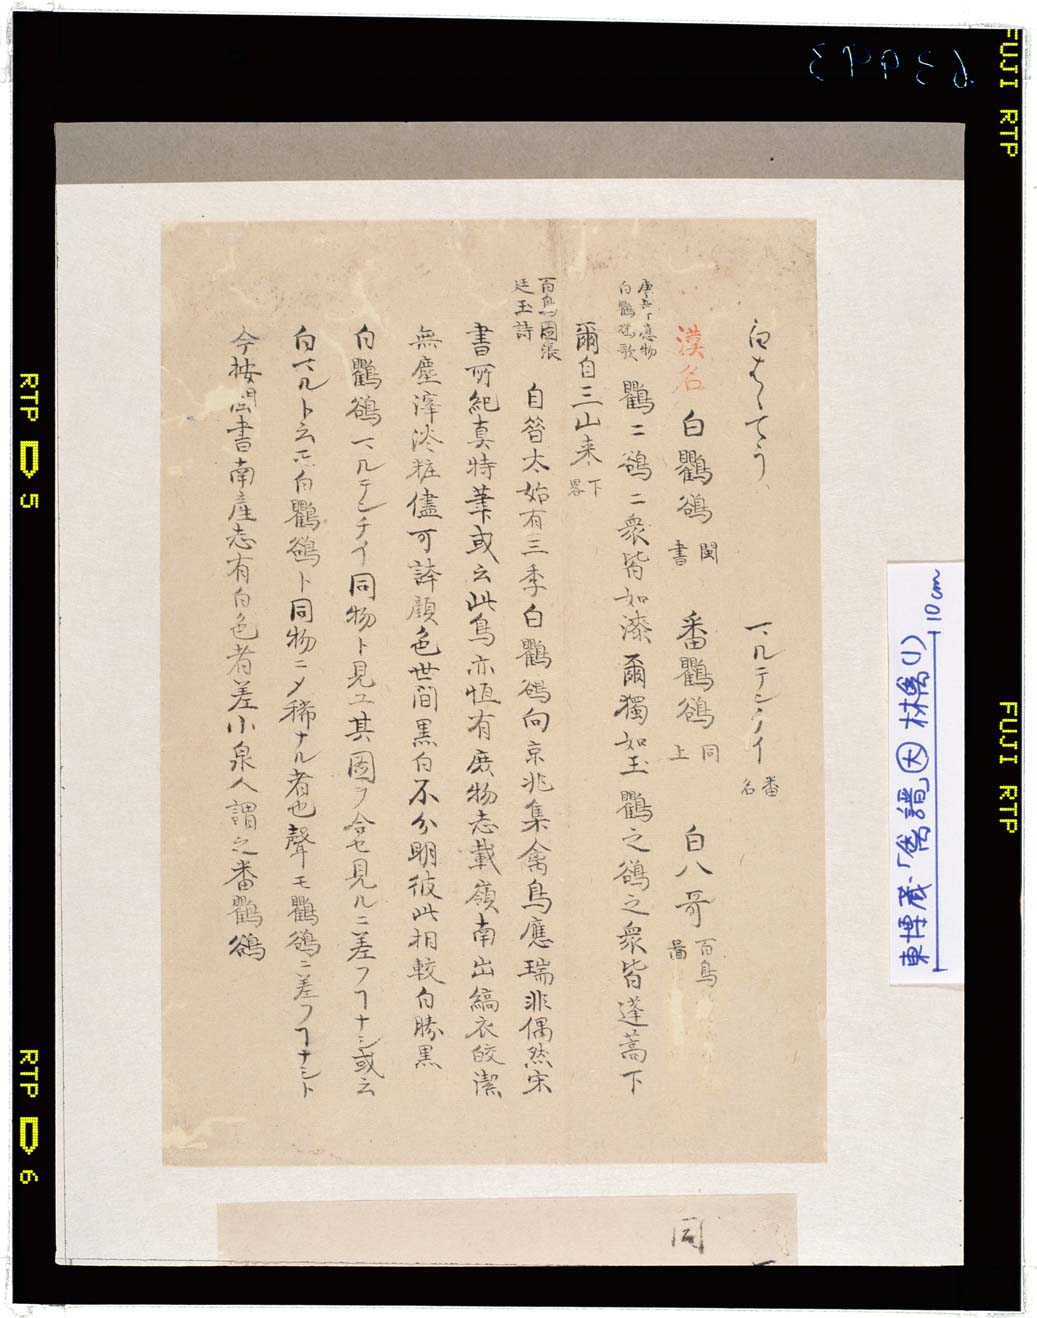 白はゝてう マルテンチイ 番名
漢名 白鸜鵒 閩書 番鸜鵒 同上 白八哥 百鳥圖
唐韋應物白鸜鵒歌 鸜ニ鵒ニ衆皆如漆爾獨如玉鸜之鵒之衆皆蓬蒿下
爾自三山来 下畧
百鳥圖張廷玉詩 自晉太始有三季白鸜鵒向京兆集禽鳥應瑞非偶然宋
書所紀真特筆或云此鳥亦恒有庶物志載嶺南出縞衣皎潔
無塵滓淡粧儘可誇顔色世间黒白不分明彼此相較白勝黒
白鸜鵒マルテンチイ同物ト見ユ其圖ヲ合セ見ルニ差フヿナシ或云
白マルト云モ白鸜鵒ト同物ニメ稀ナル者也聲モ鸜鵒ニ差フヿナシト
今按閩書南産志有白色者差小泉人謂之番鸜鵒
同
東博蔵「禽譜 因 林禽(1)
10cm
63993
FUJI RTP
FUJI RTP
RTP D 5
RTP D 6